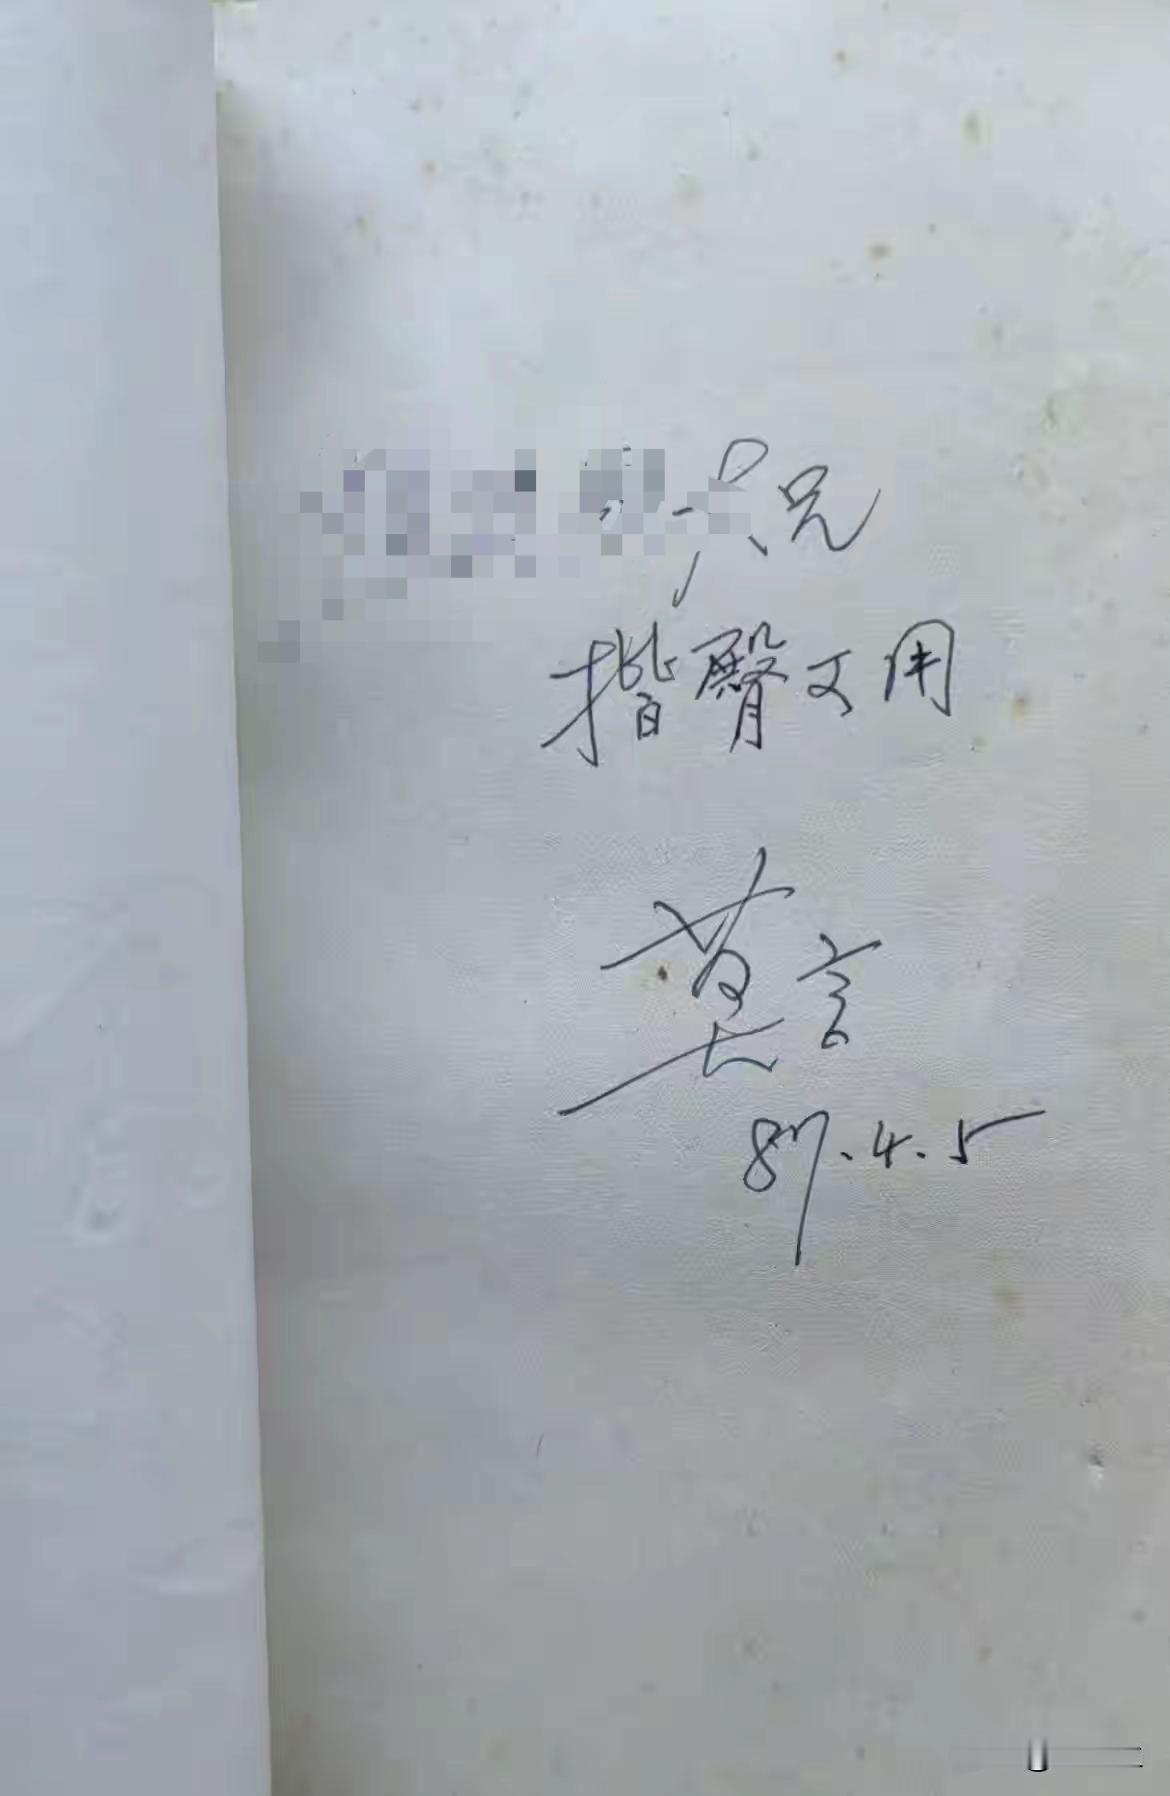 兄
揩臀之用
莫言
87.4.5